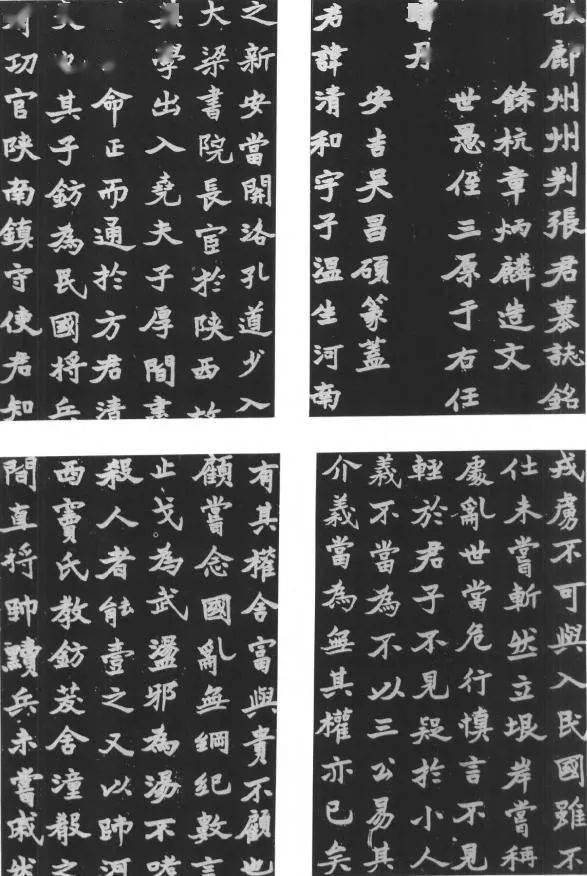 故鄜州州判張君墓誌銘
餘杭章炳麟造文
世愚侄三原于右任
書丹
安吉吴昌碩篆蓋
君諱清和字子溫生河南
之新安當關洛孔道少入
大梁書院長宦於陝西故
其學出入堯夫子厚間書
命正而通於方君清
其子鈁為民國將兵
功官陝南鎮守使君知
戎虜不可與入民國雖不
仕未嘗斬然立垠岸嘗稱
處亂世當危行慎言不見
輕於君子不見疑於小人
義不當為不以三公易其
介義當為無其權亦已矣
有其權舍富與貴不顧也
顧嘗念國亂無綱紀數言
止戈為武盪邪為湯不嗜
殺人者能壹之又以師河
西竇氏教鈁茇舍潼殽之
間直將帥黷兵未嘗戚然